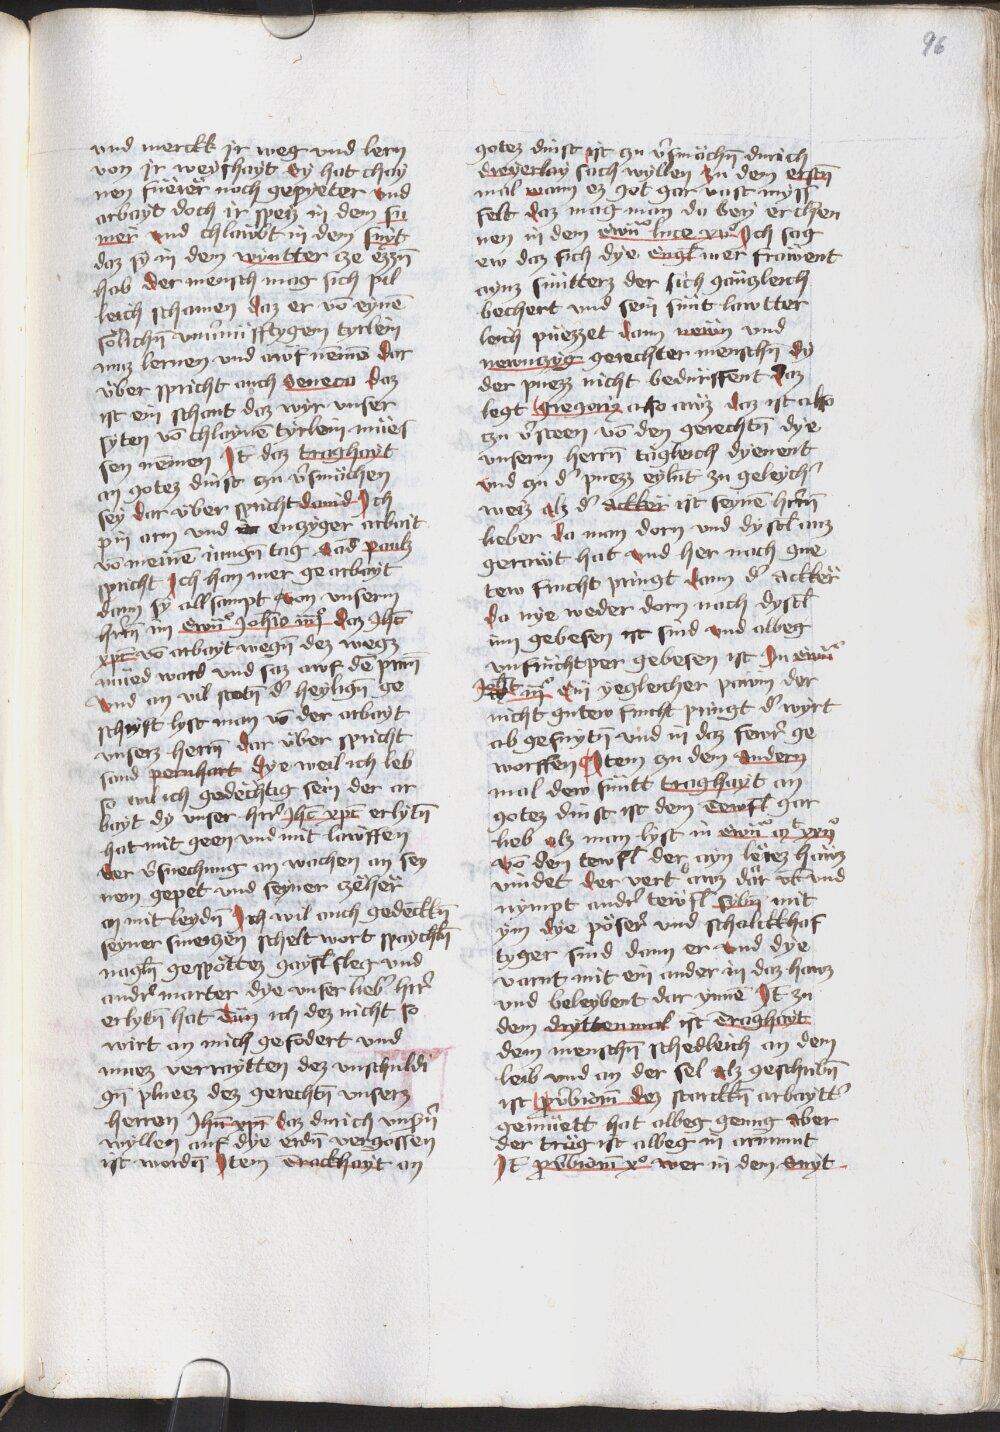 96
vnd merckk jr weg vnd lern
von jr weyshayt Sy hat chay
nen fuerer noch gepyeter vnd
arbayt doch jr speiz in dem su
mer vnd chlawbt in dem snyt
daz sy in dem wyntter cze ezzn̄
hab der mensch mag sich pil
leich schamen daz er vō eynē
sölichn̄ vnuernüfftygem tyrlein
muz lernen vnd awf nēmē dar
über spricht auch Seneca daz
ist ein schant daz wyr vnser
syten vō chlaynē tyrlein mües
sen nēmen Jt̄ daz traghayt
an gotez dinst czu v̄smächen
sey dar über spricht dauid Jch
pin arm vnd in enczyger arbait
vō meinē iungn̄ tag Sād paulz
spricht Jch han mer gearbayt
dann sy all sampt von vnserm
hrr̄n im ewn̄º Joh̄io iiijº daz Jh̄c
xp̄c vō arbayt wegn̄ dez wegz
mued ward vnd saz awf dē prūn̄
vnd an vil stetn̄ d' heylign̄ ge
schryft lyst man vō der arbayt
vnserz herrn̄ dar über spricht
sand pernhart dye weil ich leb
so wil ich gedechtig sein der ar
bayt dy vnser hrr̄' Jh̄c xp̄c erlytn̄
hat mit geen vnd mit lawffen
der v̄suechung an wachen an sey
nem gepet vnd seyner czeher
an mit leydn̄ Jch wil auch gedēckn̄
seyner smerczen schelt wort spaychln̄
nagln̄ gespöttez gaysl̄ sleg vnd
andr' marter dye vnser lieb' hrr̄'
erlytn̄ hat Tün ich dez nicht so
wirt an mich gefodert vnd
muez verraytten dez vnschuldi
gn̄ pluetz dez gerechtn̄ vnserz
herren Jh̄u xp̄i daz durich vnsrn̄
wyllen auf dye erdn̄ vergossen
ist wordn̄ Jtem Trackhayt an
gotez dinst ist czu v̄smächn̄ durich
dreyerlay sach wyllen zu dem erstn̄
mal wann ez got gar vast myss
felt daz mag man da bey erchen
nen in dem ewn̄º luce xvº Jch sag
ew daz sich dye engl̄ mer frawent
aynz süntterz der sich gänczleich
bechert vnd sein sünt lawtter
leich püezzet dann newn vnd
newnczyg gerechter menschn̄ dy
der puezz nicht bedurffent daz
legt Gregorius also auz daz ist also
czu v̄steen vō den gerechtn̄ dye
vnserm herrn̄ tägleich dyenent
vnd czu d' puezz eylnt zu geleych'
weiz alz d' akker ist seynē hrr̄n̄
lieber da man dorn vnd dystl̄ auz
gerawt hat vnd her nach gue
tew frucht pringt dann d' Ackker
da nye weder dorn nach dystl̄
inn gebesen ist sind vnd albeg
vnfruchtper gebesen ist Jn ewn̄º
iijº Ein yegleicher pawm der
nicht gutew frucht pringt d' wyrt
ab gesnytn̄ vnd in daz fewr' ge
worffen Jtem czu dem Andern
mal dew sünt traghayt an
gotez dinst ist dem tewfl̄ gar
lieb alz man lyst in ewn̄º
vō dem tewfl̄ der ayn lerez hawz
vindet der vert awz dar vnd
nympt andr' tewfl̄ sybn̄ mit
ym dye pöser vnd schalckhaf
tyger sind dann er vnd dye
varnt mit ein ander in daz hawz
vnd beleybent dar ynnē Jt̄ zu
dem drytten mal ist traghayt
dem menschn̄ schedleich an dem
leib vnd an der sel alz geschribn̄
ist p̄ubiorm̄ dez starckn̄ arbaytt'
gemüett hat albeg genug Aber
der träg ist albeg in armmut
Jt̄ p̄ubiorm̄ xº wer in dem Snyt